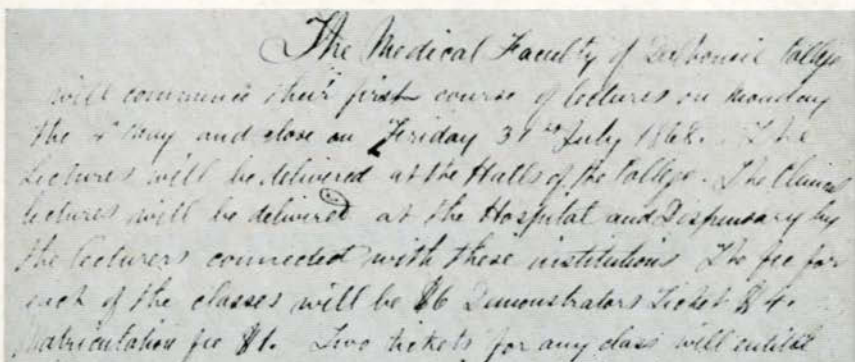 The Medical Faculty of Dalhousie College
will commence their first course of lectures on Monday
the 4th May and close on Friday 31st July 1868. The
Lectures will be delivered at the Halls of the College. The Clinical
lectures will be delivered at the Hospital and Dispensary by
the lecturers connected with these institutions The fee for
each of the classes will be $6 Demonstrators Ticket $4.
Matriculation fee $1. Two tickets for any class will entitle